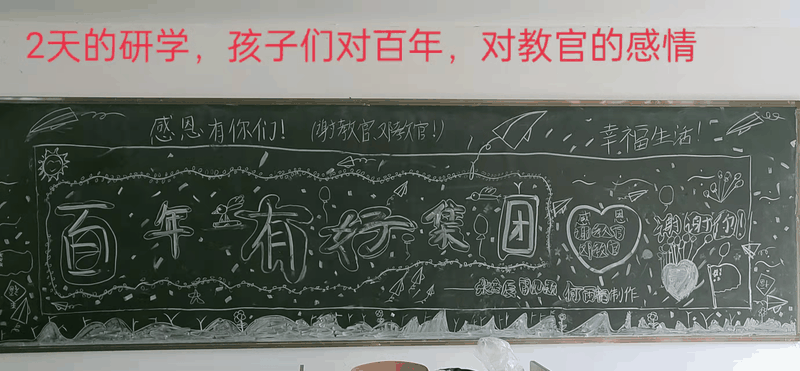 2天的研学，孩子们对百年，对教官的感情
感恩有你们！（谢教官邓教官！） 幸福生活！
百年有好集团
感恩
谢教官
邓教官
谢谢你！
制作